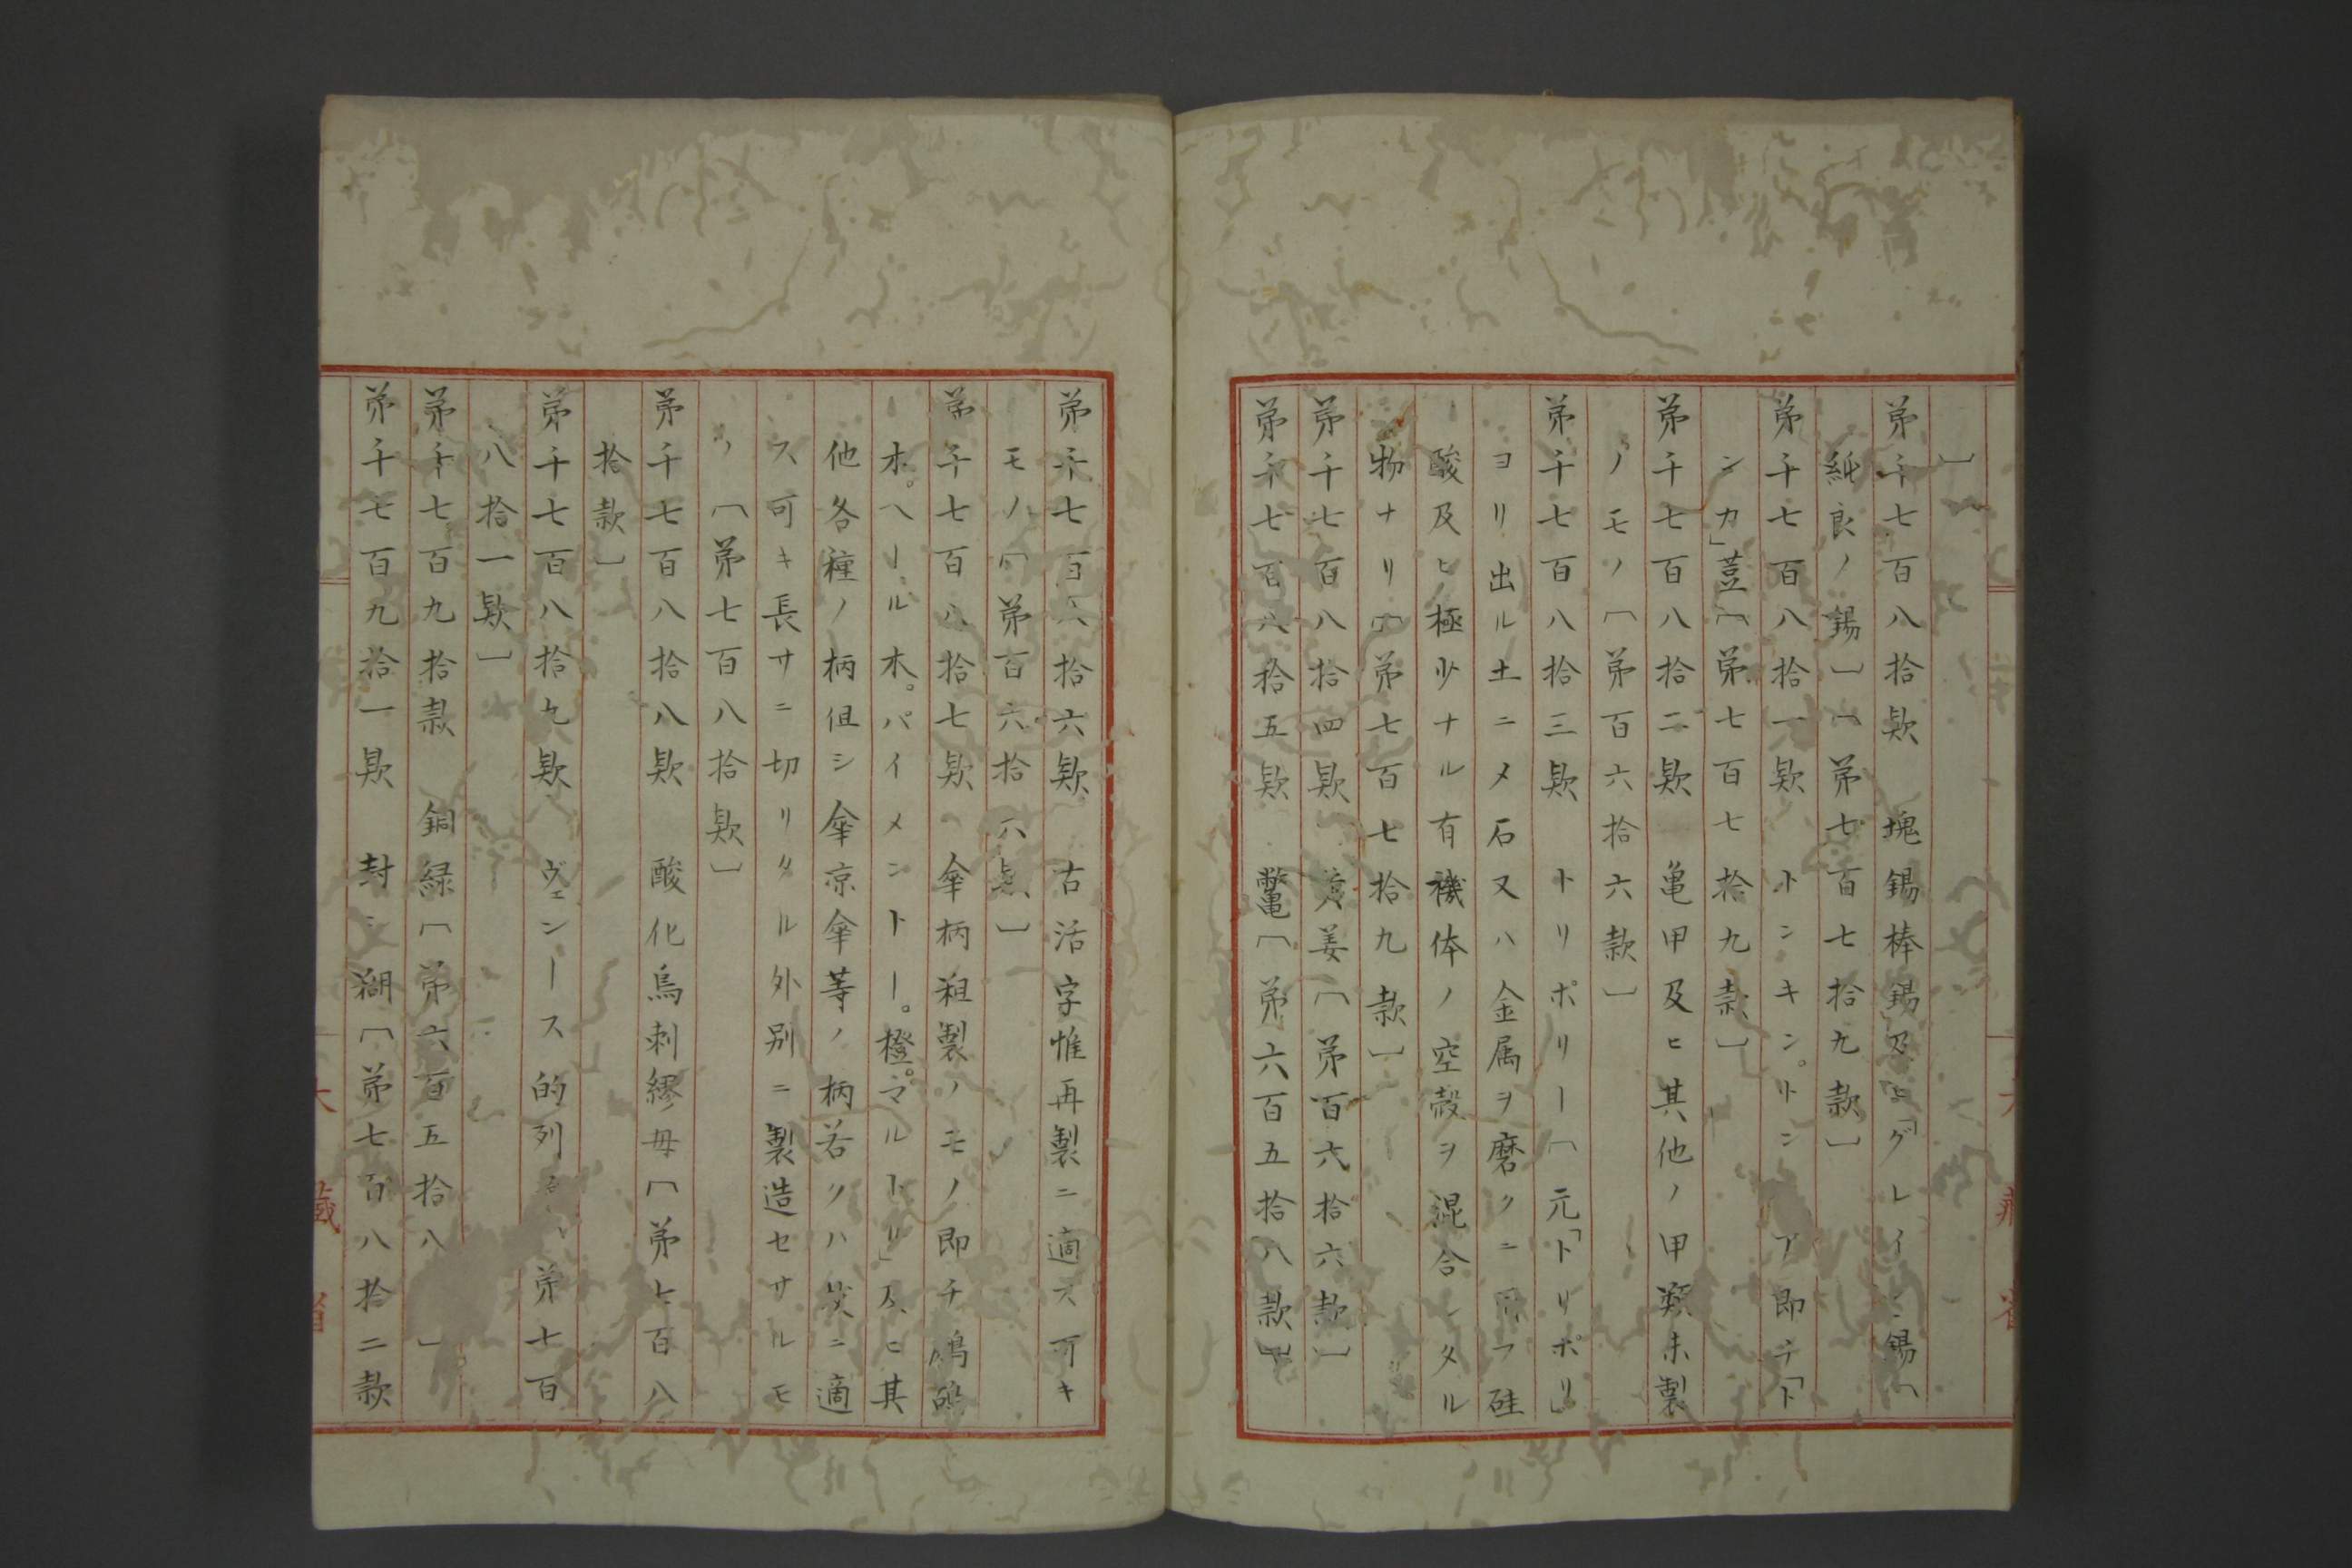 〕
第千七百八拾款　塊錫棒錫及ヒ「グレイン錫〔
純良ノ錫〕〔第七百七拾九款〕
第千七百八拾一款　トンキン。トンア即チ「ト
ンカ」荳〔第七百七拾九款〕
第千七百八拾二款　亀甲及ヒ其他ノ甲類未製
ノモノ〔第百六拾六款〕
第千七百八拾三款　トリポリー〔元「トリポリ」
ヨリ出ル土ニメ石又ハ金属ヲ磨クニ用フ硅
酸及ヒ極少ナル有機体ノ空殻ヲ混合シタル
物ナリ〔第七百七拾九款〕
第千七百八拾四款　黄姜〔第百六拾六款〕
第千七百八拾五款　鼈〔第六百五拾八款〕
第千七百八拾六款　古活字惟再製ニ適ス可キ
モノ〔第百六拾六款〕
第千七百八拾七款　傘柄粗製ノモノ即チ
木。ヘール木。パイメントー。橙。マルトリ」及ヒ其
他各種ノ柄但シ傘凉傘等ノ柄若クハ ニ適
ス可キ長サニ切リタル外別ニ製造セサルモ
ノ〔第七百八拾款〕
第千七百八拾八款　酸化烏刺繆母〔第七百八
拾款〕
第千七百八拾九款　ヴェンース的列 第七百
八拾一款〕
第千七百九拾款　銅緑〔第六百五拾八 〕
第千七百九拾一款　封糊〔第七百八拾二款
大藏省